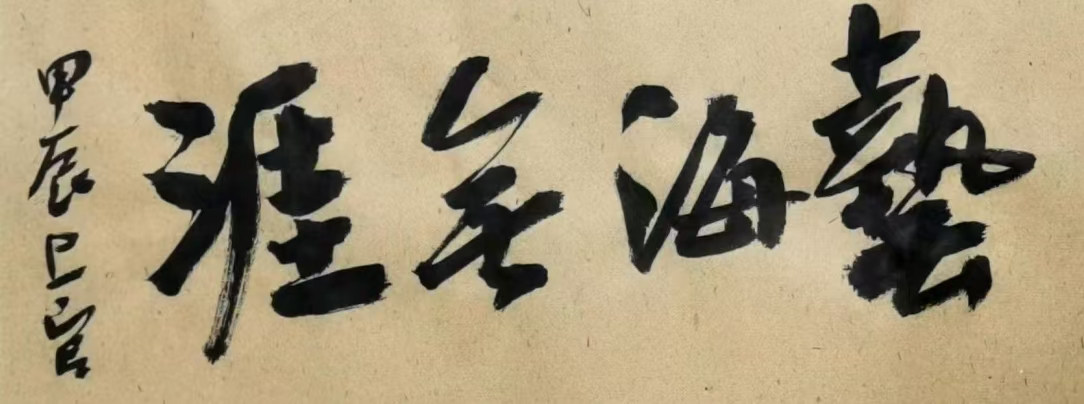 藝海無涯
甲辰上官